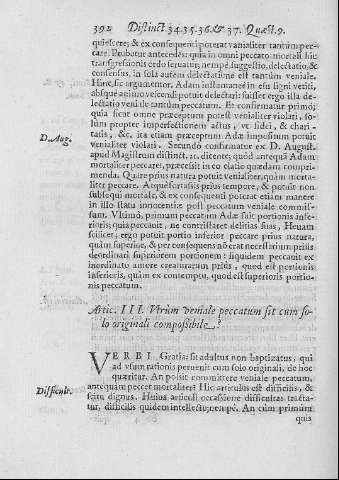 392 Distinct 34.35.36.& 37. Quæst.9.
quiescere; & ex consequenti poterat venialiter tantum pec-
care. Probatur antecedens: quia in omni peccato mortali hic
transgressionis ordo seruatur, nempè suggestio, delectatio, &
consensus, in sola autem delectatione est tantum veniale.
Hinc, sic argumentor, Adam instammone in esu ligni vetiti,
absque animo vescendi potuit delectari: fuisset ergo illa de-
lectatio veniale tantum peccatum. Et confirmatur primò;
quia sicut omne præceptum potest venialiter violari, so-
lum propter imperfectionem actus, vt fidei, & chari-
D. Aug.
tatis, &c, ita etiam præceptum Adæ impositum potuit
venialiter violari. Secundò confirmatur ex D. August.
apud Magistrum distinct. 21. dicente; quod antequã Adam
mortaliter peccaret, præcessit in eo elatio quædam compri-
menda. Quare prius natura potuit venialiter, quàm morta-
liter peccare. Atque fortassis prius tempore, & potuit non
subsequi mortale, & ex consequenti poterat etiam manere
in illo statu innocentiæ post peccatum veniale commis-
sum. Vltimò, primum peccatum Adæ fuit portionis infe-
rioris; quia peccauit, ne contristaret delitias suas, Heuam
scilicet; ergo potuit portio inferior peccare prius natura,
quàm superior, & per consequens nõ erat necessarium prius
desordinari superiorem portionem: siquidem peccauit ex
inordinato amore creaturarum prius, quod est portionis
inferioris, quàm ex contemptu, quod est superioris portio-
nis peccatum.
Artic. III. Vtrùm veniale peccatum sit cum so-
lo originali compossibile?
VERBI Gratia: sit adultus non baptizatus, qui
ad vsum rationis peruenit cum solo originali, de hoc
quæritur. An possit committere veniale peccatum,
antequàm peccet mortaliter? Hic articulus est difficilis, &
Difficult.
scitu dignus. Huius articuli occassione difficultas tracta-
tur, difficilis quidem intellectu, nempè. An cùm primùm
quis